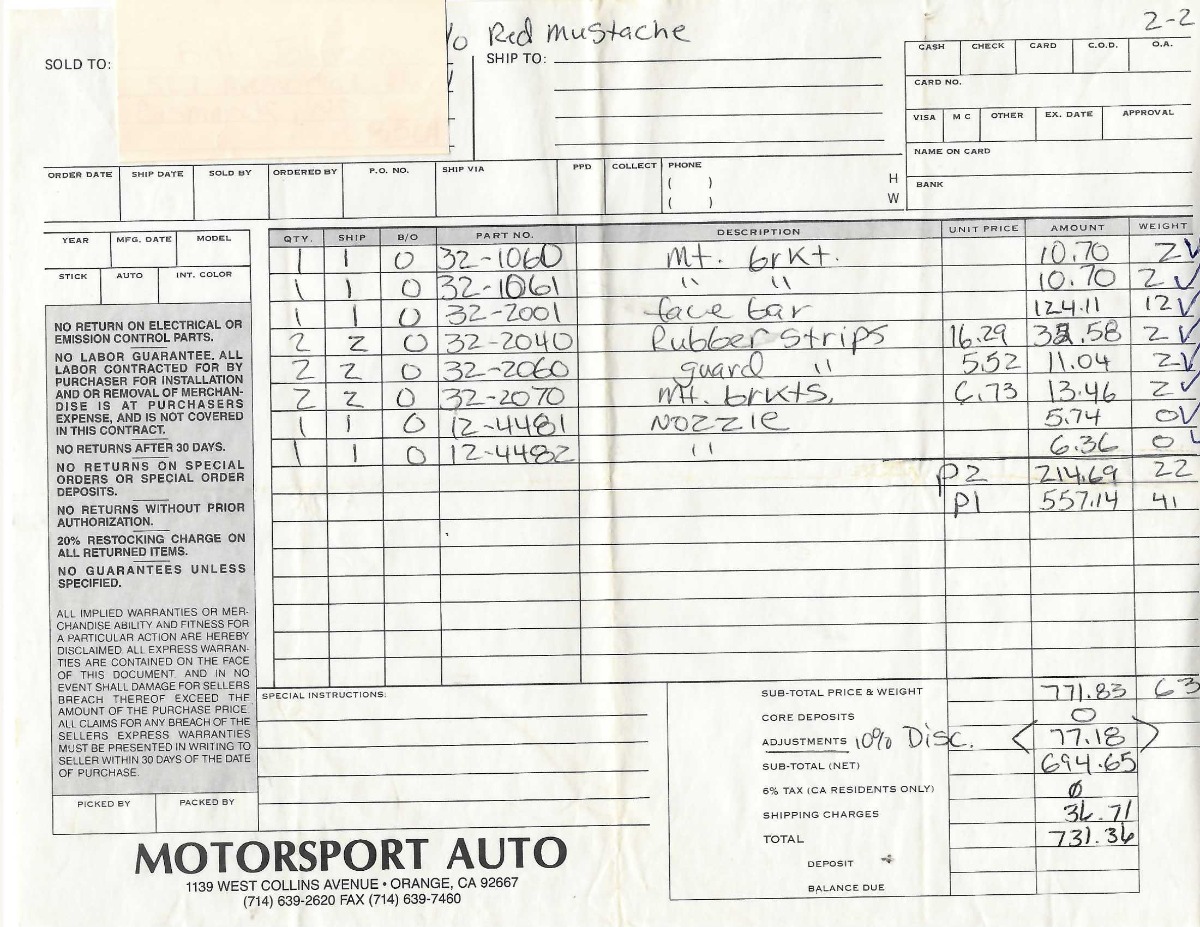 2-2
% Red Mustache
SOLD TO:
SHIP TO:
CASH CHECK CARD C.O.D. O.A.
CARD NO.
VISA M C OTHER EX. DATE APPROVAL
NAME ON CARD
BANK
ORDER DATE SHIP DATE SOLD BY ORDERED BY P.O. NO. SHIP VIA PPD COLLECT PHONE
( ) H
( ) W
YEAR MFG. DATE MODEL
STICK AUTO INT. COLOR
QTY. SHIP B/O PART NO. DESCRIPTION UNIT PRICE AMOUNT WEIGHT
1 1 0 32-1060 Mt. brkt. 10.70 2 ✓
1 1 0 32-1061 " " 10.70 2 ✓
1 1 0 32-2001 face bar 124.11 12 ✓
2 2 0 32-2040 Rubber Strips 16.29 32.58 2 ✓
2 2 0 32-2060 guard " 5.52 11.04 2 ✓
2 2 0 32-2070 Mt. brkts. 6.73 13.46 2 ✓
1 1 0 12-4481 Nozzle 5.74 0 ✓
1 1 0 12-4482 " 6.36 0 ✓
P2 214.69 22
P1 557.14 41
NO RETURN ON ELECTRICAL OR
EMISSION CONTROL PARTS.
NO LABOR GUARANTEE. ALL
LABOR CONTRACTED FOR BY
PURCHASER FOR INSTALLATION
AND/OR REMOVAL OF MERCHAN-
DISE IS AT PURCHASERS
EXPENSE, AND IS NOT COVERED
IN THIS CONTRACT.
NO RETURNS AFTER 30 DAYS.
NO RETURNS ON SPECIAL
ORDERS OR SPECIAL ORDER
DEPOSITS.
NO RETURNS WITHOUT PRIOR
AUTHORIZATION.
20% RESTOCKING CHARGE ON
ALL RETURNED ITEMS.
NO GUARANTEES UNLESS
SPECIFIED.
ALL IMPLIED WARRANTIES OR MER-
CHANDISE ABILITY AND FITNESS FOR
A PARTICULAR ACTION ARE HEREBY
DISCLAIMED. ALL EXPRESS WARRAN-
TIES ARE CONTAINED ON THE FACE
OF THIS DOCUMENT. AND IN NO
EVENT SHALL DAMAGE FOR SELLERS
BREACH THEREOF EXCEED THE
AMOUNT OF THE PURCHASE PRICE.
ALL CLAIMS FOR ANY BREACH OF THE
SELLERS EXPRESS WARRANTIES
MUST BE PRESENTED IN WRITING TO
SELLER WITHIN 30 DAYS OF THE DATE
OF PURCHASE.
PICKED BY PACKED BY
SPECIAL INSTRUCTIONS:
SUB-TOTAL PRICE & WEIGHT 771.83 63
CORE DEPOSITS 0
ADJUSTMENTS 10% Disc. < 77.18 >
SUB-TOTAL (NET) 694.65
6% TAX (CA RESIDENTS ONLY) Ø
SHIPPING CHARGES 36.71
TOTAL 731.36
DEPOSIT
BALANCE DUE
MOTORSPORT AUTO
1139 WEST COLLINS AVENUE • ORANGE, CA 92667
(714) 639-2620 FAX (714) 639-7460